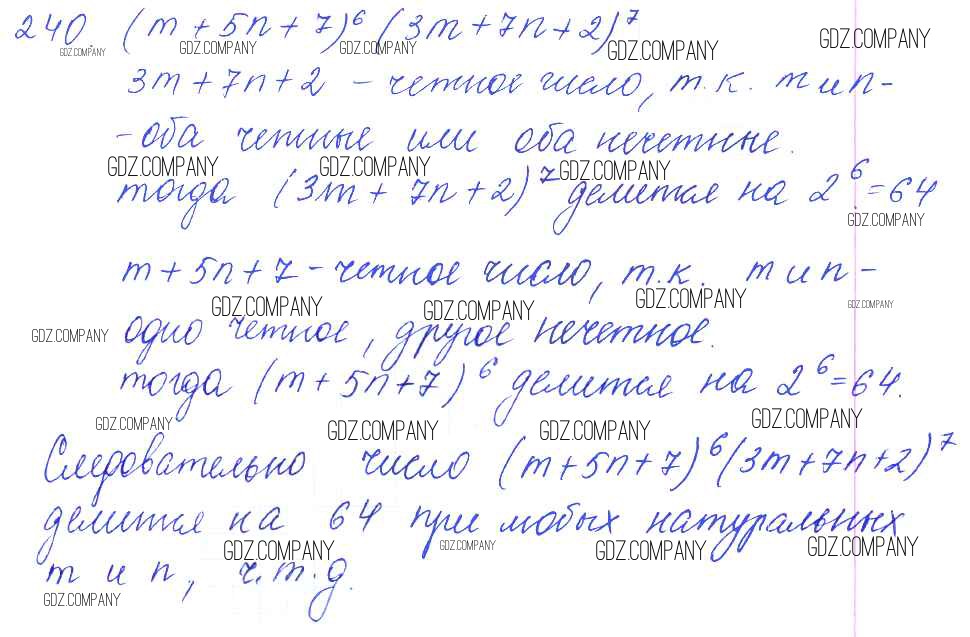 240. (m + 5n + 7)⁶ (3m + 7n + 2)⁷
GDZ.COMPANY GDZ.COMPANY GDZ.COMPANY GDZ.COMPANY GDZ.COMPANY
3m + 7n + 2 – четное число, т.к. m и n -
- оба четные или оба нечетные.
GDZ.COMPANY GDZ.COMPANY GDZ.COMPANY
тогда (3m + 7n + 2)⁷ делится на 2⁶ = 64
GDZ.COMPANY
m + 5n + 7 – четное число, т.к. m и n –
GDZ.COMPANY GDZ.COMPANY GDZ.COMPANY GDZ.COMPANY
GDZ.COMPANY одно четное, другое нечетное.
тогда (m + 5n + 7)⁶ делится на 2⁶ = 64.
GDZ.COMPANY GDZ.COMPANY GDZ.COMPANY GDZ.COMPANY
Следовательно число (m + 5n + 7)⁶ (3m + 7n + 2)⁷
делится на 64 при любых натуральных
GDZ.COMPANY GDZ.COMPANY GDZ.COMPANY GDZ.COMPANY
m и n, ч.т.д.
GDZ.COMPANY